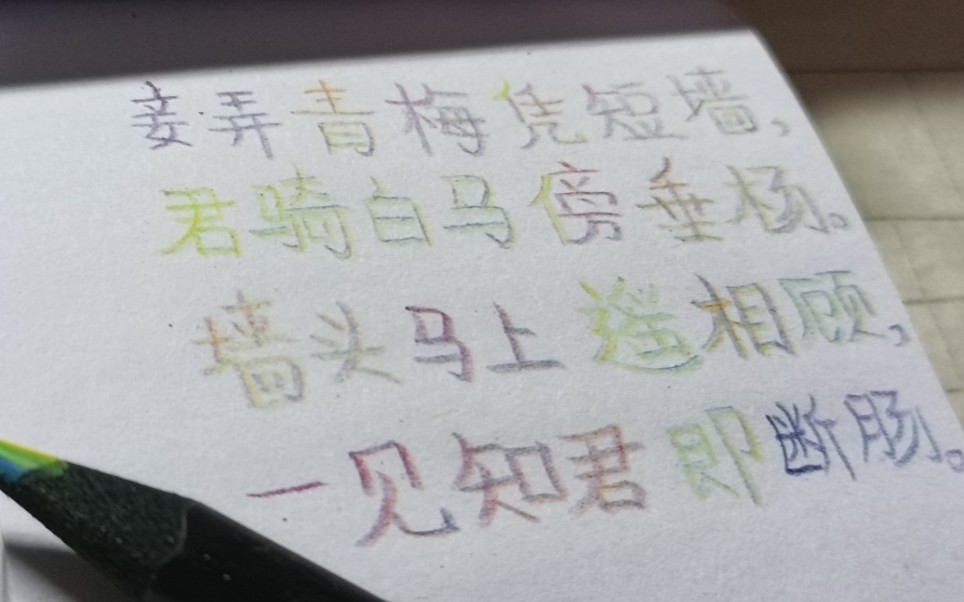 妾弄青梅凭短墙，
君骑白马傍垂杨。
墙头马上遥相顾，
一见知君即断肠。